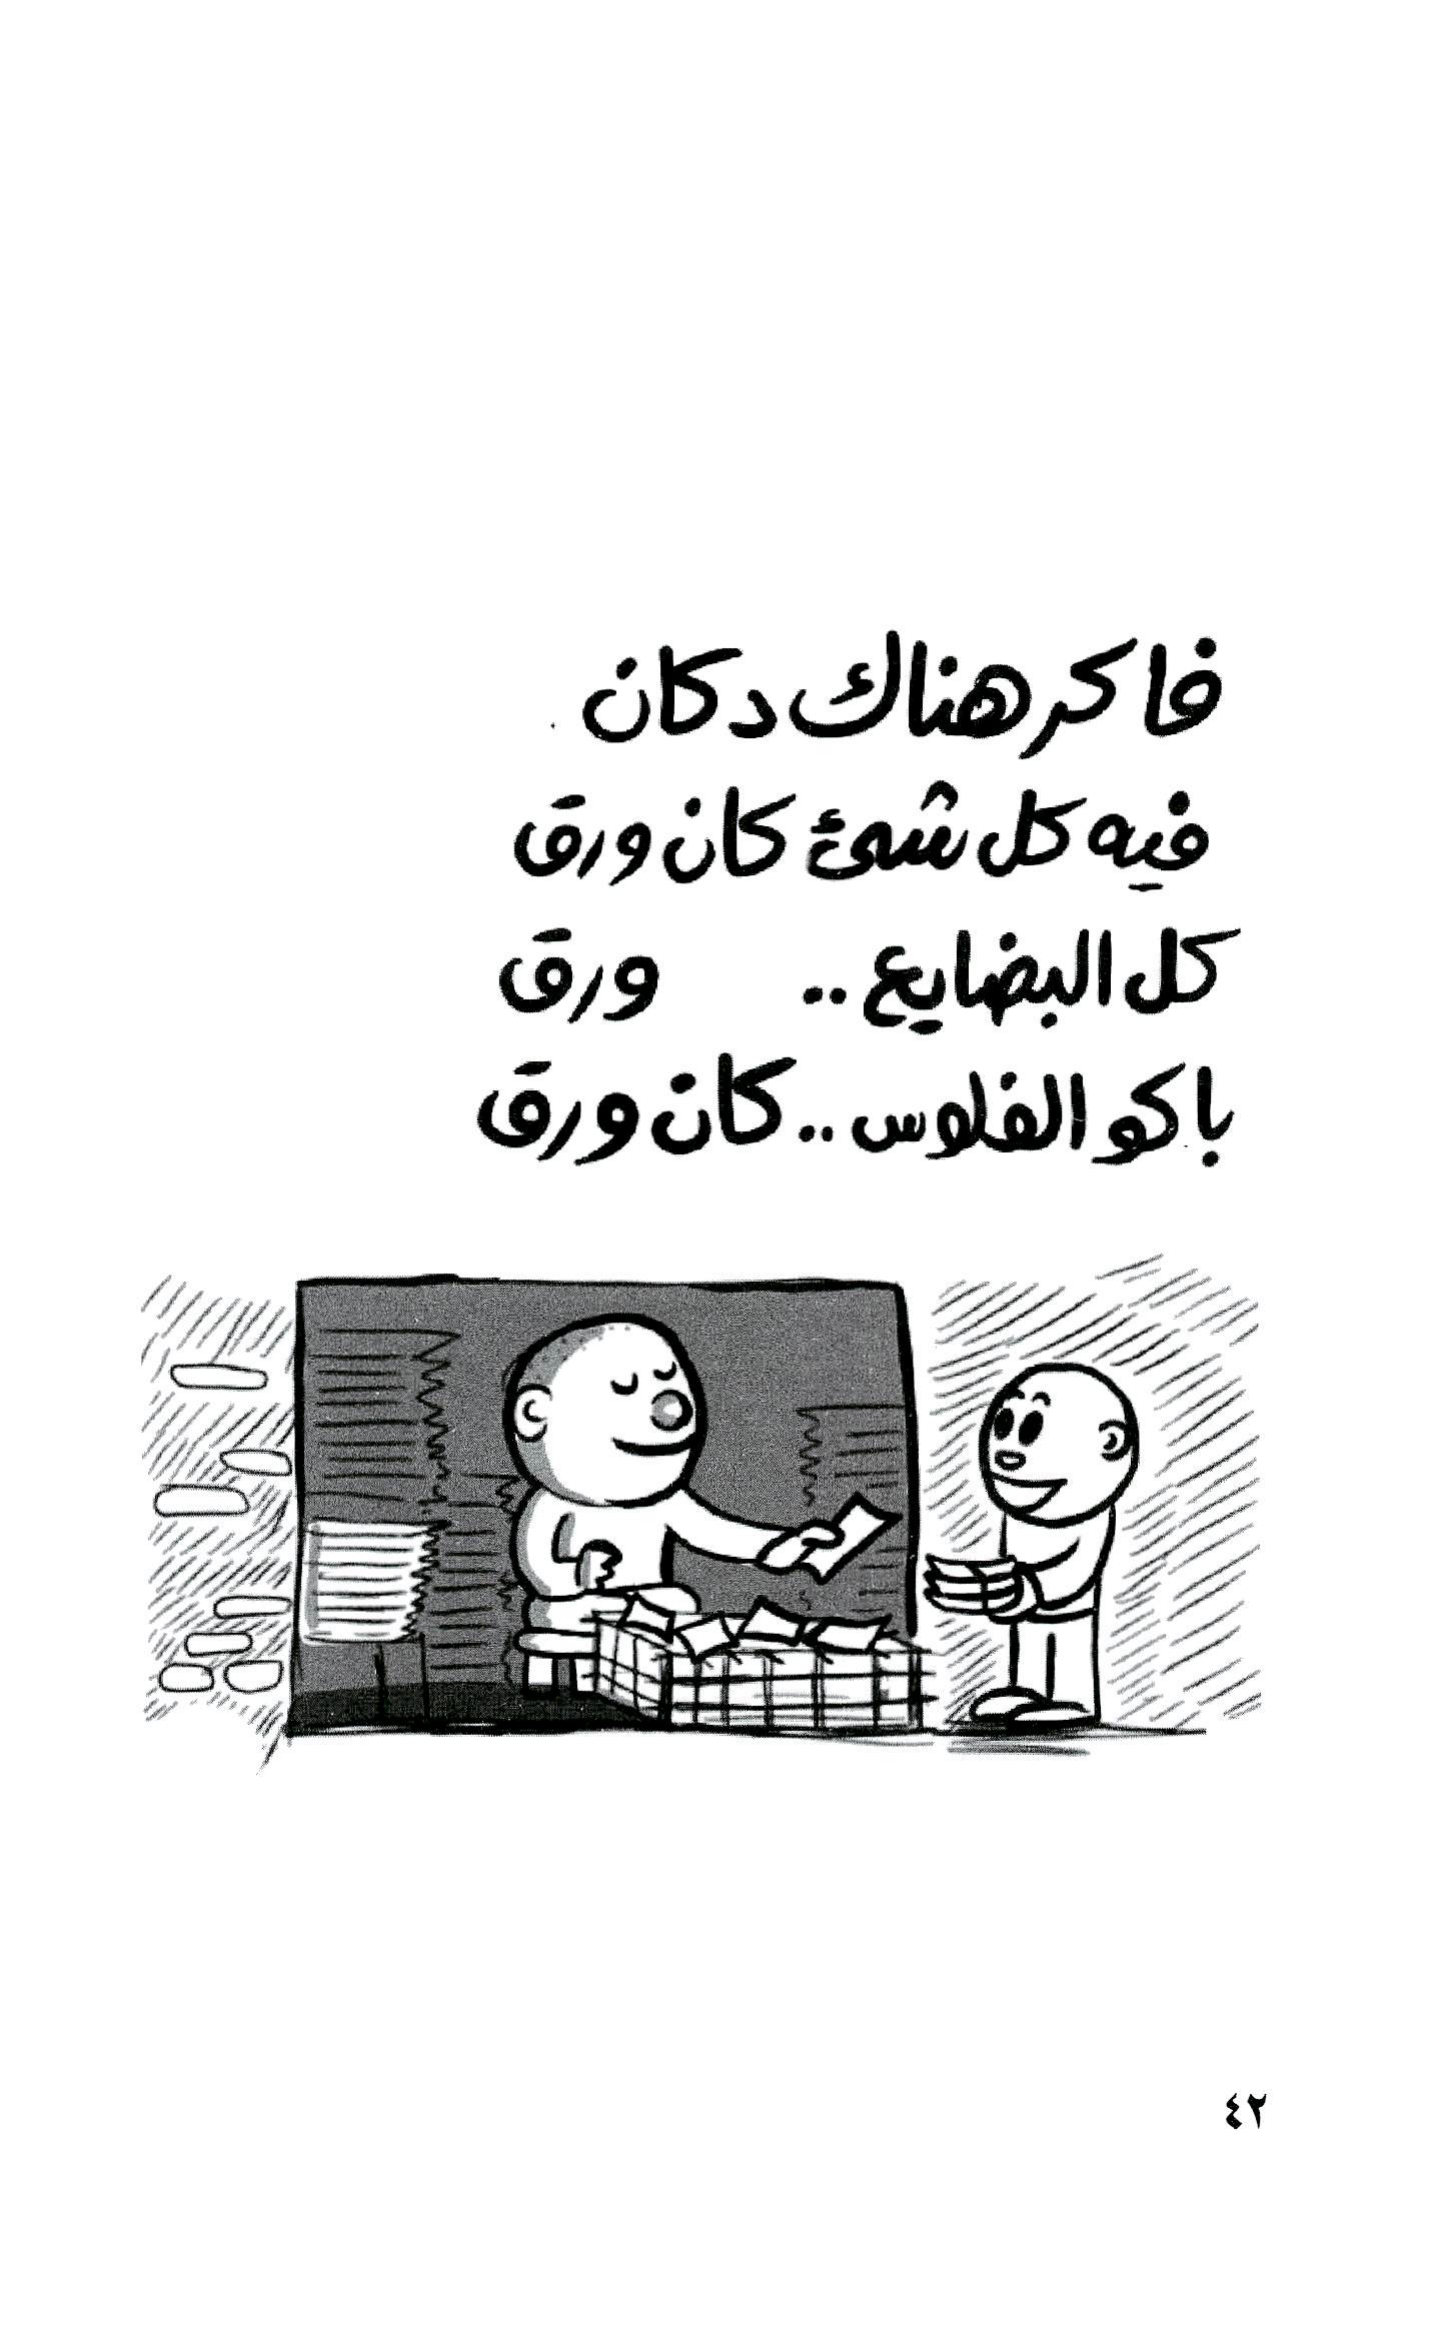 فاكر هناك دكان
فيه كل شئ كان ورق
كل البضايع .. ورق
باكو الفلوس .. كان ورق
٤٢